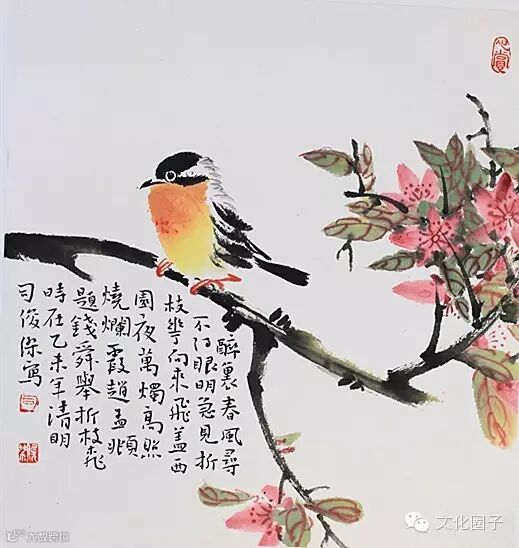 醉裏春風尋
不得眼明忽見折
枝華向來飛盖西
園夜萬燭高照
燒爛霞趙孟頫
題錢舜舉折枝桃
時在乙未年清明
司俊寫
文化圈子
大数跨境